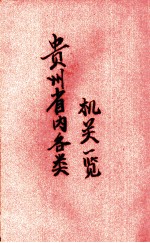 贵州省内各类
机关一览